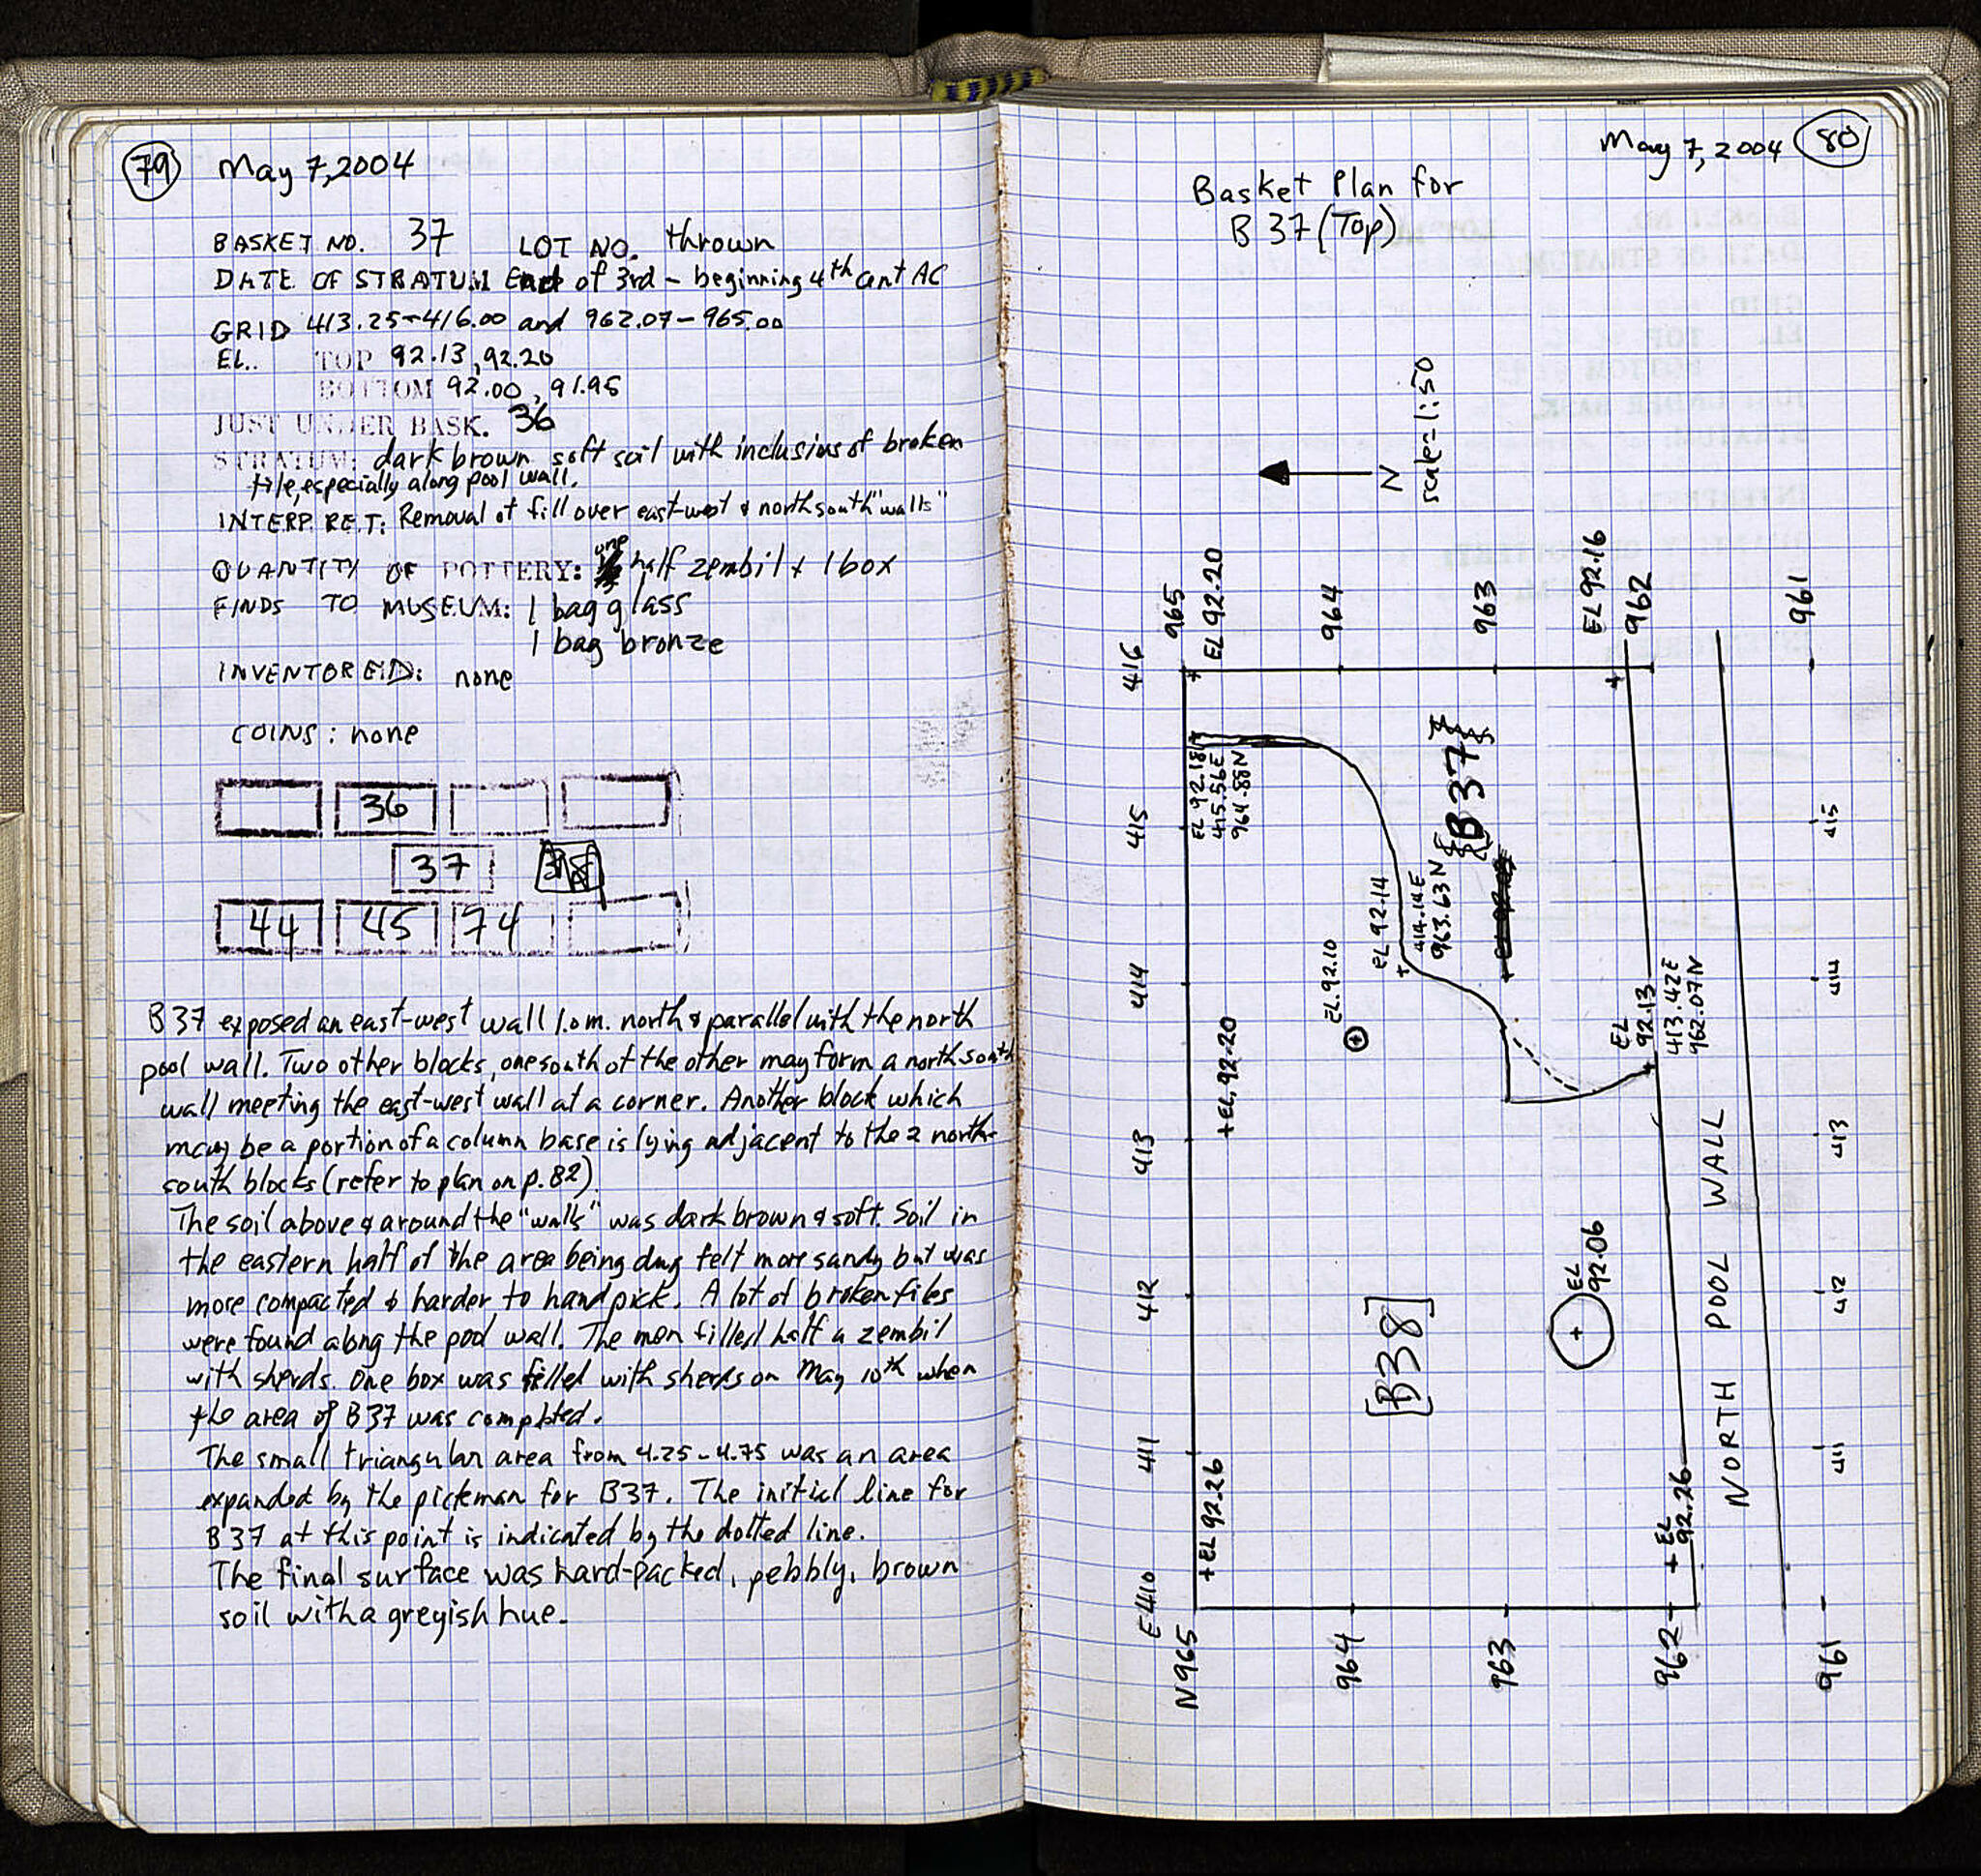 79 May 7, 2004
BASKET NO. 37 LOT NO. thrown
DATE OF STRATUM End of 3rd - beginning 4th cent AC
GRID 413.25-416.00 and 962.07-965.00
EL. TOP 92.13, 92.20
BOTTOM 92.00, 91.95
JUST UNDER BASK. 36
STRATUM: dark brown soft soil with inclusions of broken
tile, especially along pool wall.
INTERPRET: Removal of fill over east-west & north south "walls"
QUANTITY OF POTTERY: one half zembil + 1 box
FINDS TO MUSEUM: 1 bag glass
1 bag bronze
INVENTORIED: none
COINS: none
36
37
44 45 74
B37 exposed an east-west wall 1.0m. north & parallel with the north
pool wall. Two other blocks, one south of the other may form a north south
wall meeting the east-west wall at a corner. Another block which
may be a portion of a column base is lying adjacent to the 2 north-
south blocks (refer to plan on p. 82)
The soil above & around the "walls" was dark brown & soft. Soil in
the eastern half of the area being dug felt more sandy but was
more compacted & harder to handpick. A lot of broken tiles
were found along the pool wall. The men filled half a zembil
with sherds. One box was filled with sherds on May 10th when
the area of B37 was completed.
The small triangular area from 4.25-4.75 was an area
expanded by the pickman for B37. The initial line for
B37 at this point is indicated by the dotted line.
The final surface was hard-packed, pebbly, brown
soil with a greyish hue.
May 7, 2004 80
Basket Plan for
B 37 (Top)
N
scale=1:50
965
EL 92.20
964
963
EL 92.16
962
961
416
EL 92.18
415.56E
964.88N
415
415
B37
EL 92.14
414.14E
963.63N
EL 92.10
414
414
EL 92.13
413.42E
962.07N
EL. 92.20
413
413
EL 92.06
412
412
[B38]
NORTH POOL WALL
411
411
EL 92.26
EL 92.26
E410
N965
964
963
962
961